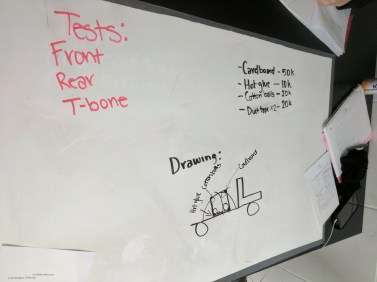 Tests:
Front
Rear
T-bone
- Cardboard - 50k
- Hot glue - 10k
- Cotton balls - 20k
- Duct tape x2 - 20k
Drawing:
Hot glue